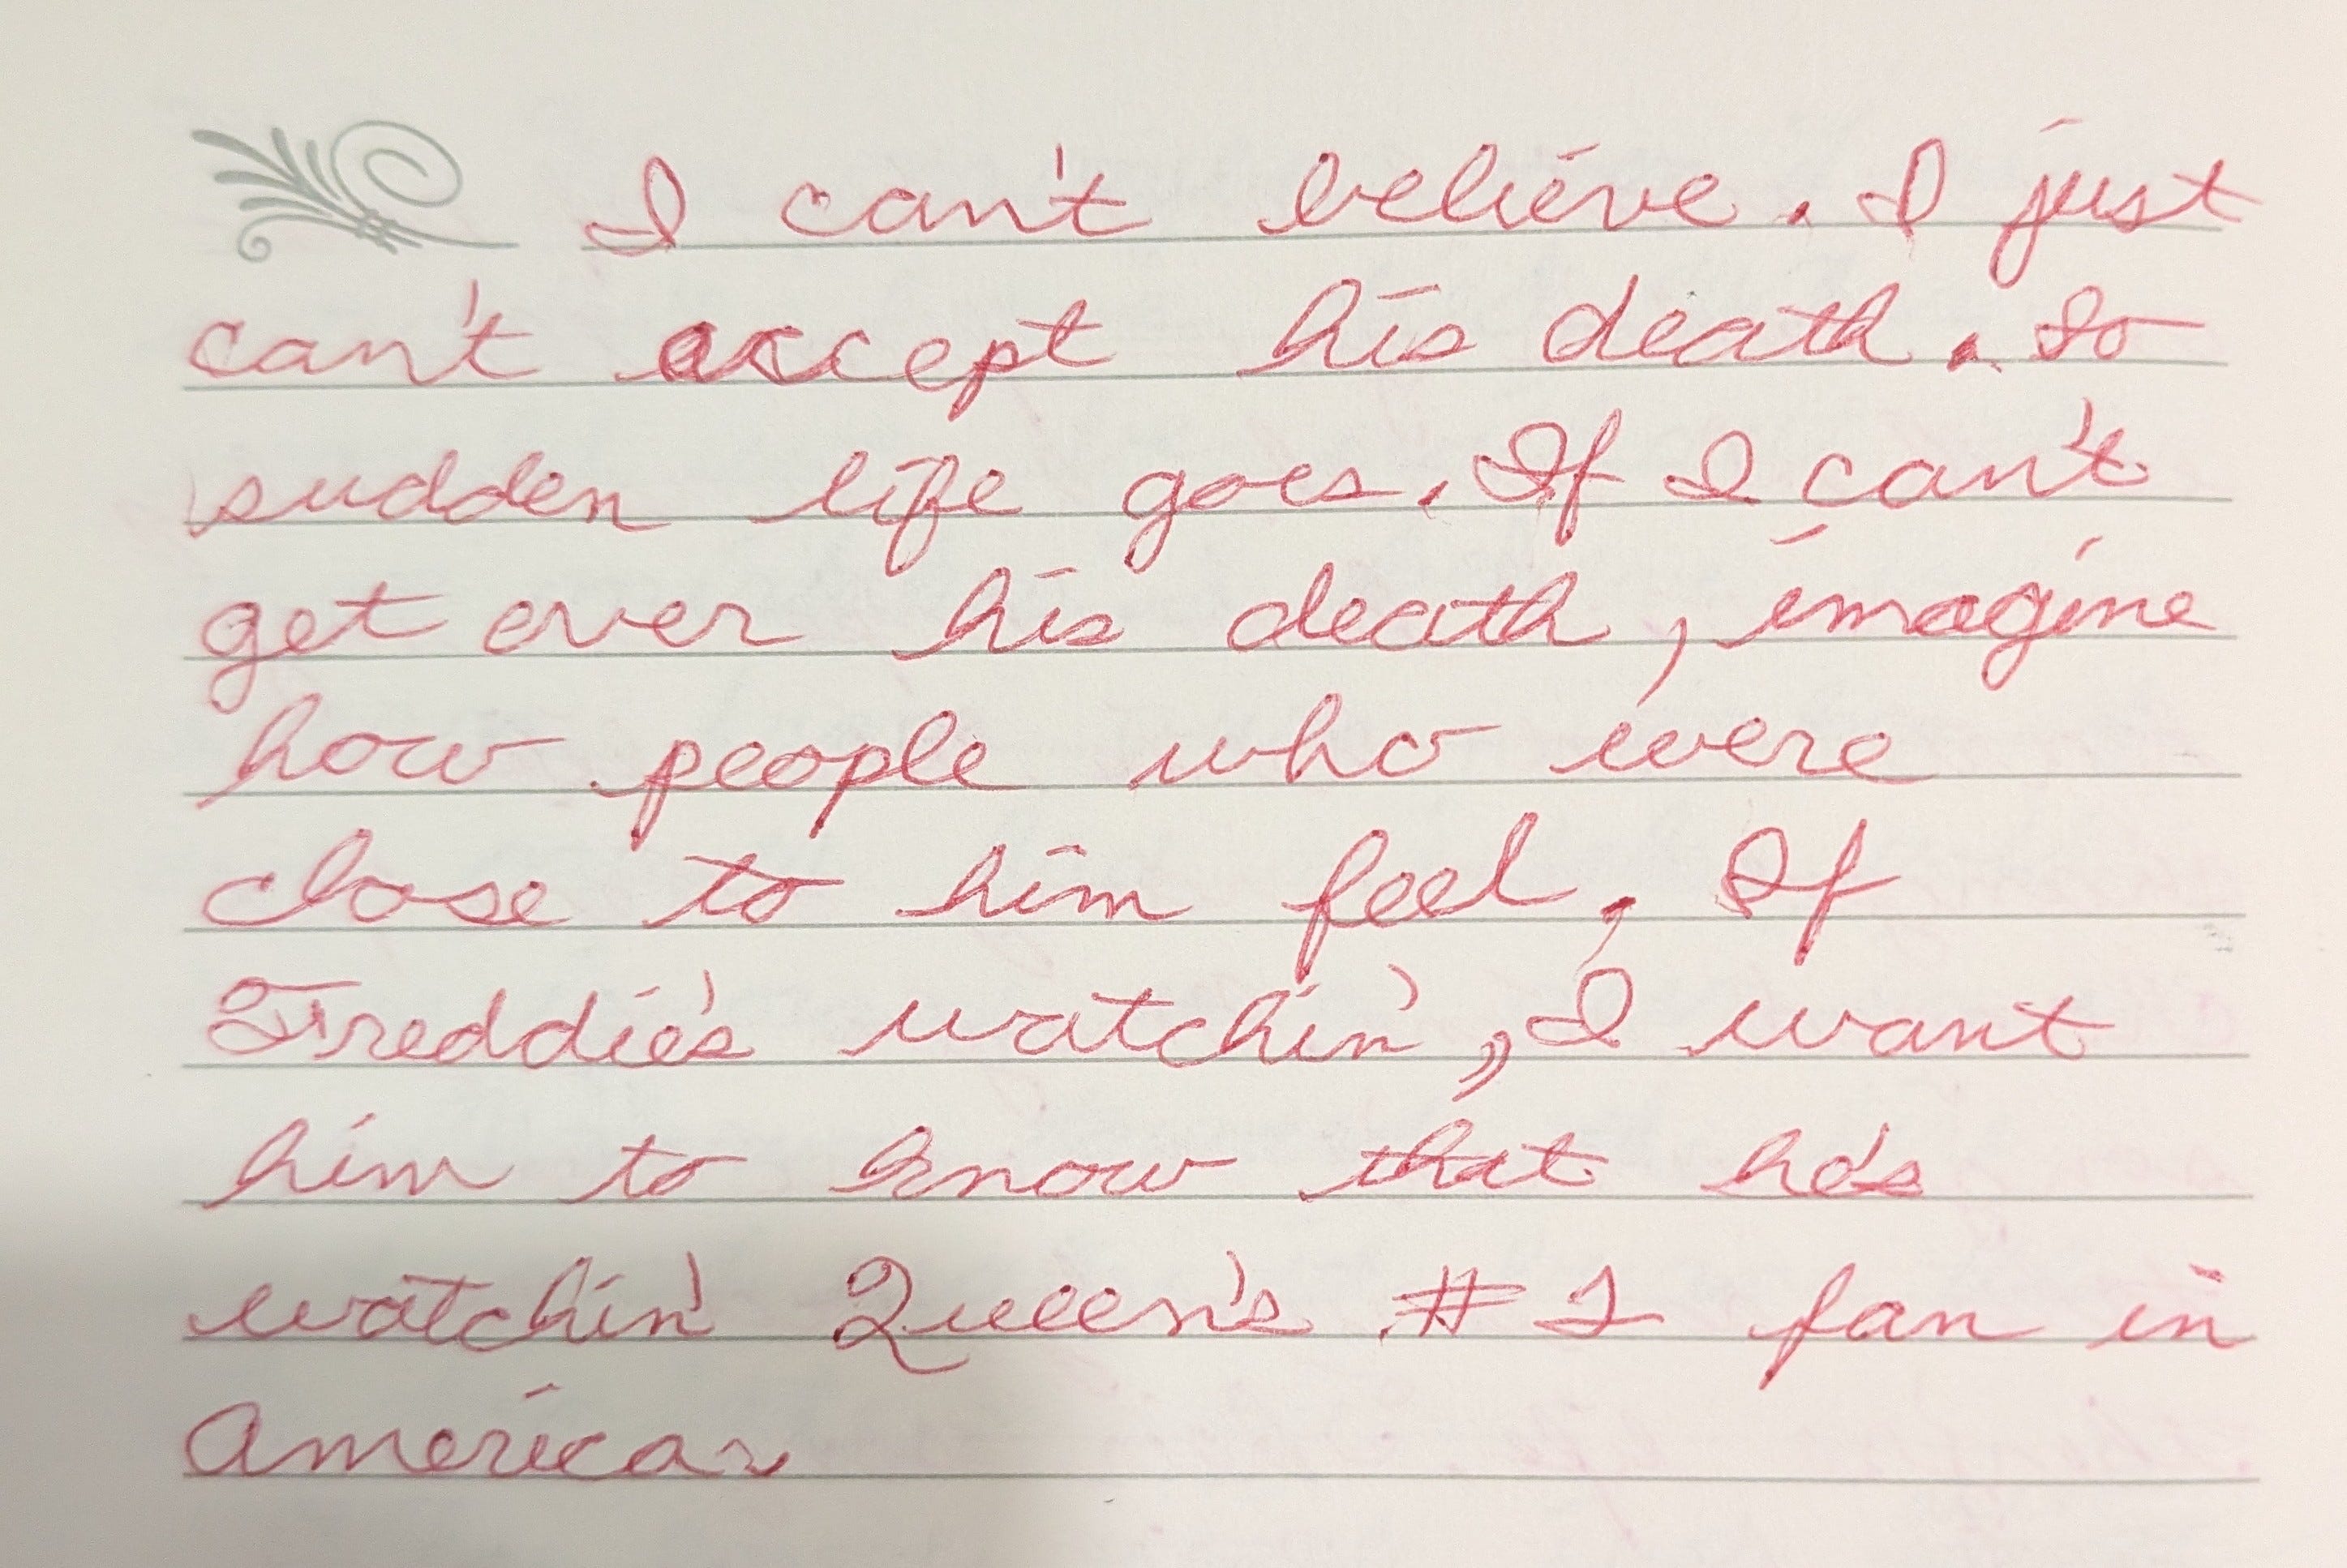 I can't believe. I just
can't accept his death. So
sudden life goes. If I can't
get over his death, imagine
how people who were
close to him feel. If
Freddie's watchin', I want
him to know that he's
watchin' Queen's #1 fan in
America.